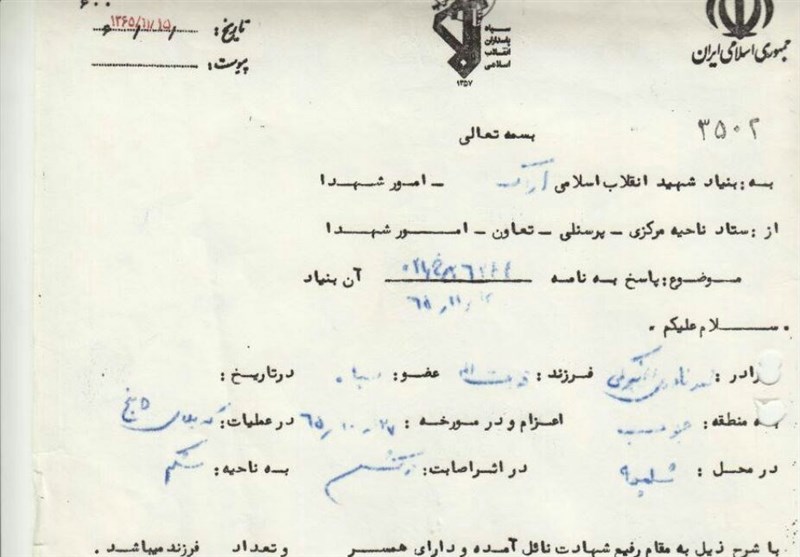 جمهوری اسلامی ایران
سپاه
پاسداران
انقلاب
اسلامی
۱۳۵۷
تاریخ : ۱۳۶۵/۱۱/۱۵
پیوست :
۳۵۰۲
بسمه تعالی
به : بنیاد شهید انقلاب اسلامی اراک - امور شهدا
از : ستاد ناحیه مرکزی - پرسنلی - تعاون - امور شهدا
موضوع : پاسخ به نامه آن بنیاد
سلام علیکم .
برادر : فرزند : قدرت اله عضو : سپاه در تاریخ :
به منطقه : جنوب اعزام و در مورخه : ۲۷-۱۰-۶۵ در عملیات : کربلای ۵ پنج
در محل : شلمچه در اثر اصابت : ترکش به ناحیه : شکم
با شرح ذیل به مقام رفیع شهادت نائل آمده و دارای همسر و تعداد فرزند میباشد .